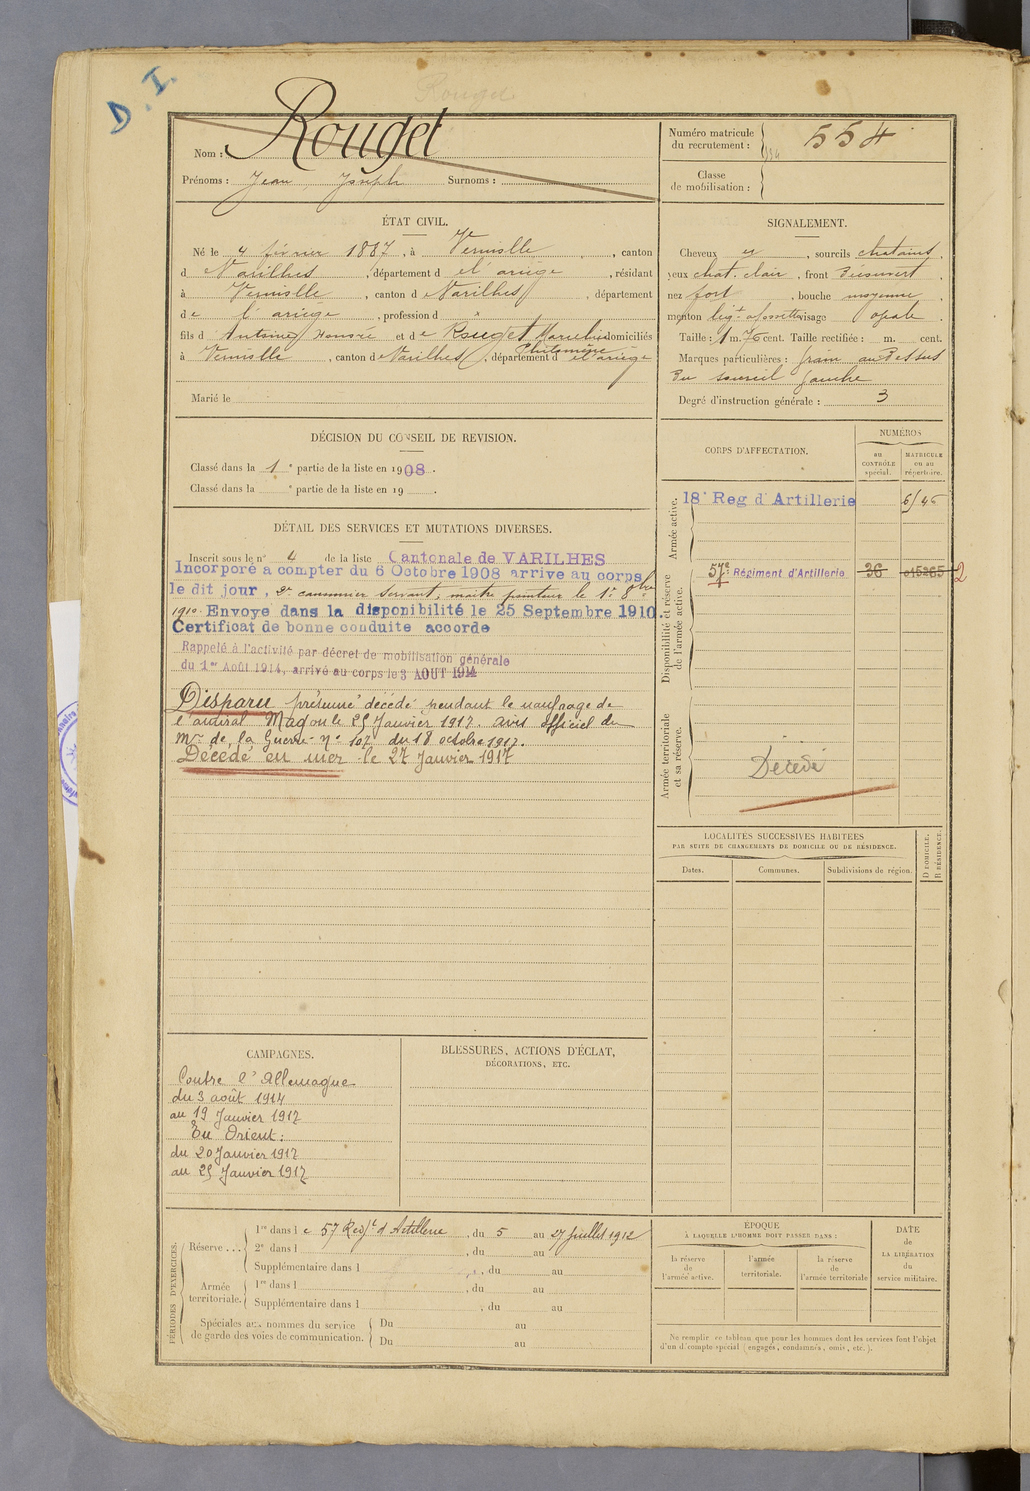 D. I.
Rouget
Nom : Rouget
Prénoms : Jean Joseph Surnoms :
Numéro matricule du recrutement : 554
Classe de mobilisation :
ÉTAT CIVIL.
Né le 4 février 1887, à Verniolle, canton
d Varilhes, département d el ariège, résidant
à Verniolle, canton d Varilhes, département
de l'ariège, profession d
fils d Antoine Honoré et de Rouget domiciliés
Philomène
à Verniolle, canton de Varilhes, département d el ariège
Marié le
SIGNALEMENT.
Cheveux y, sourcils chatains,
yeux chat. clair, front Découvert,
nez fort, bouche moyenne,
menton visage ovale
Taille : 1 m. 76 cent. Taille rectifiée : m. cent.
Marques particulières : grain au Dessus
Du sourcil gauche
Degré d'instruction générale : 3
DÉCISION DU CONSEIL DE REVISION.
Classé dans la 1e partie de la liste en 1908.
Classé dans la e partie de la liste en 19 .
CORPS D'AFFECTATION.
NUMÉROS
au CONTRÔLE spécial.
MATRICULE ou au répertoire.
Armée active.
18e Reg d'Artillerie
Disponibilité et réserve de l'armée active.
57e Régiment d'Artillerie 36
Armée territoriale et sa réserve.
Décédé
DÉTAIL DES SERVICES ET MUTATIONS DIVERSES.
Inscrit sous le n° 4 de la liste Cantonale de VARILHES
Incorporé a compter du 6 Octobre 1908 arrive au corps
le dit jour, 2e canonnier servant, maitre pointeur le 1er 8bre
1910. Envoyé dans la disponibilité le 25 Septembre 1910
Certificat de bonne conduite accorde
Rappelé à l'activité par décret de mobilisation générale
du 1er Août 1914, arrivé au corps le 3 AOUT 1914
Disparu présumé décédé pendant le naufrage de
l'amiral Magon le 25 Janvier 1917. avis officiel du
Mre de la Guerre n° 107 du 18 octobre 1917.
Décédé en mer le 27 Janvier 1917
LOCALITÉS SUCCESSIVES HABITÉES
PAR SUITE DE CHANGEMENTS DE DOMICILE OU DE RÉSIDENCE.
Dates.
Communes.
Subdivisions de région.
D DOMICILE.
R RÉSIDENCE.
CAMPAGNES.
Contre l'Allemagne
du 3 août 1914
au 19 Janvier 1917
En Orient :
du 20 Janvier 1917
au 25 Janvier 1917
BLESSURES, ACTIONS D'ÉCLAT,
DÉCORATIONS, ETC.
PÉRIODES D'EXERCICES.
Réserve ...
1re dans l e 57 Regt d'Artillerie, du 5 au 27 juillet 1912
2e dans l , du au
Supplémentaire dans l , du au
Armée territoriale.
1re dans l , du au
Supplémentaire dans l , du au
Spéciales aux hommes du service
de garde des voies de communication.
Du au
Du au
ÉPOQUE
À LAQUELLE L'HOMME DOIT PASSER DANS :
la réserve de l'armée active.
l'armée territoriale.
la réserve de l'armée territoriale
DATE
de
LA LIBÉRATION
du
service militaire.
Ne remplir ce tableau que pour les hommes dont les services font l'objet
d'un d compte spécial (engagés, condamnés, omis, etc.).